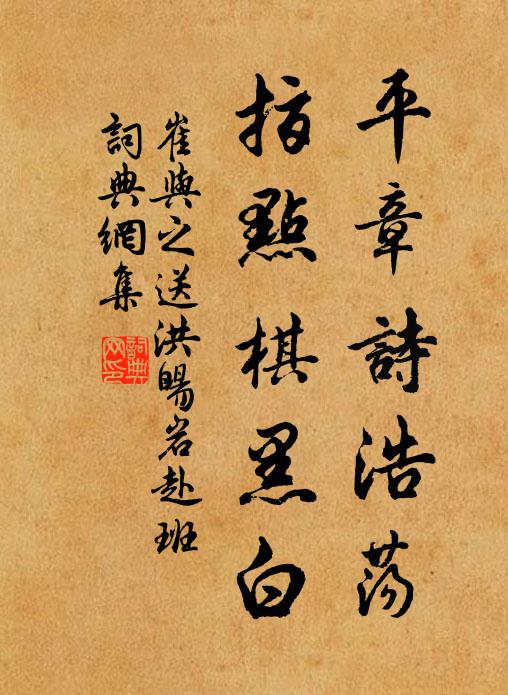 平章詩浩荡
指點棋黑白
崔與之送洪暘岩赴班
詞典網集
詞典網印